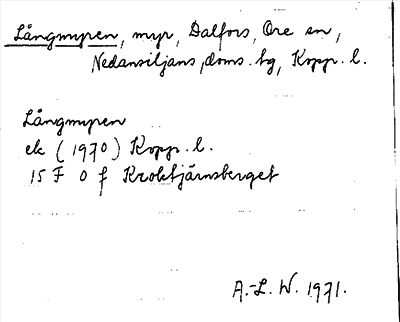 Långmyren, myr, Dalfors, Ore sn,
Nedansiljans doms. hg, Kopp. l.
Långmyren
ek (1970) Kopp. l.
15 F 0 f Kroktjärnsberget
A.-L. W. 1971.